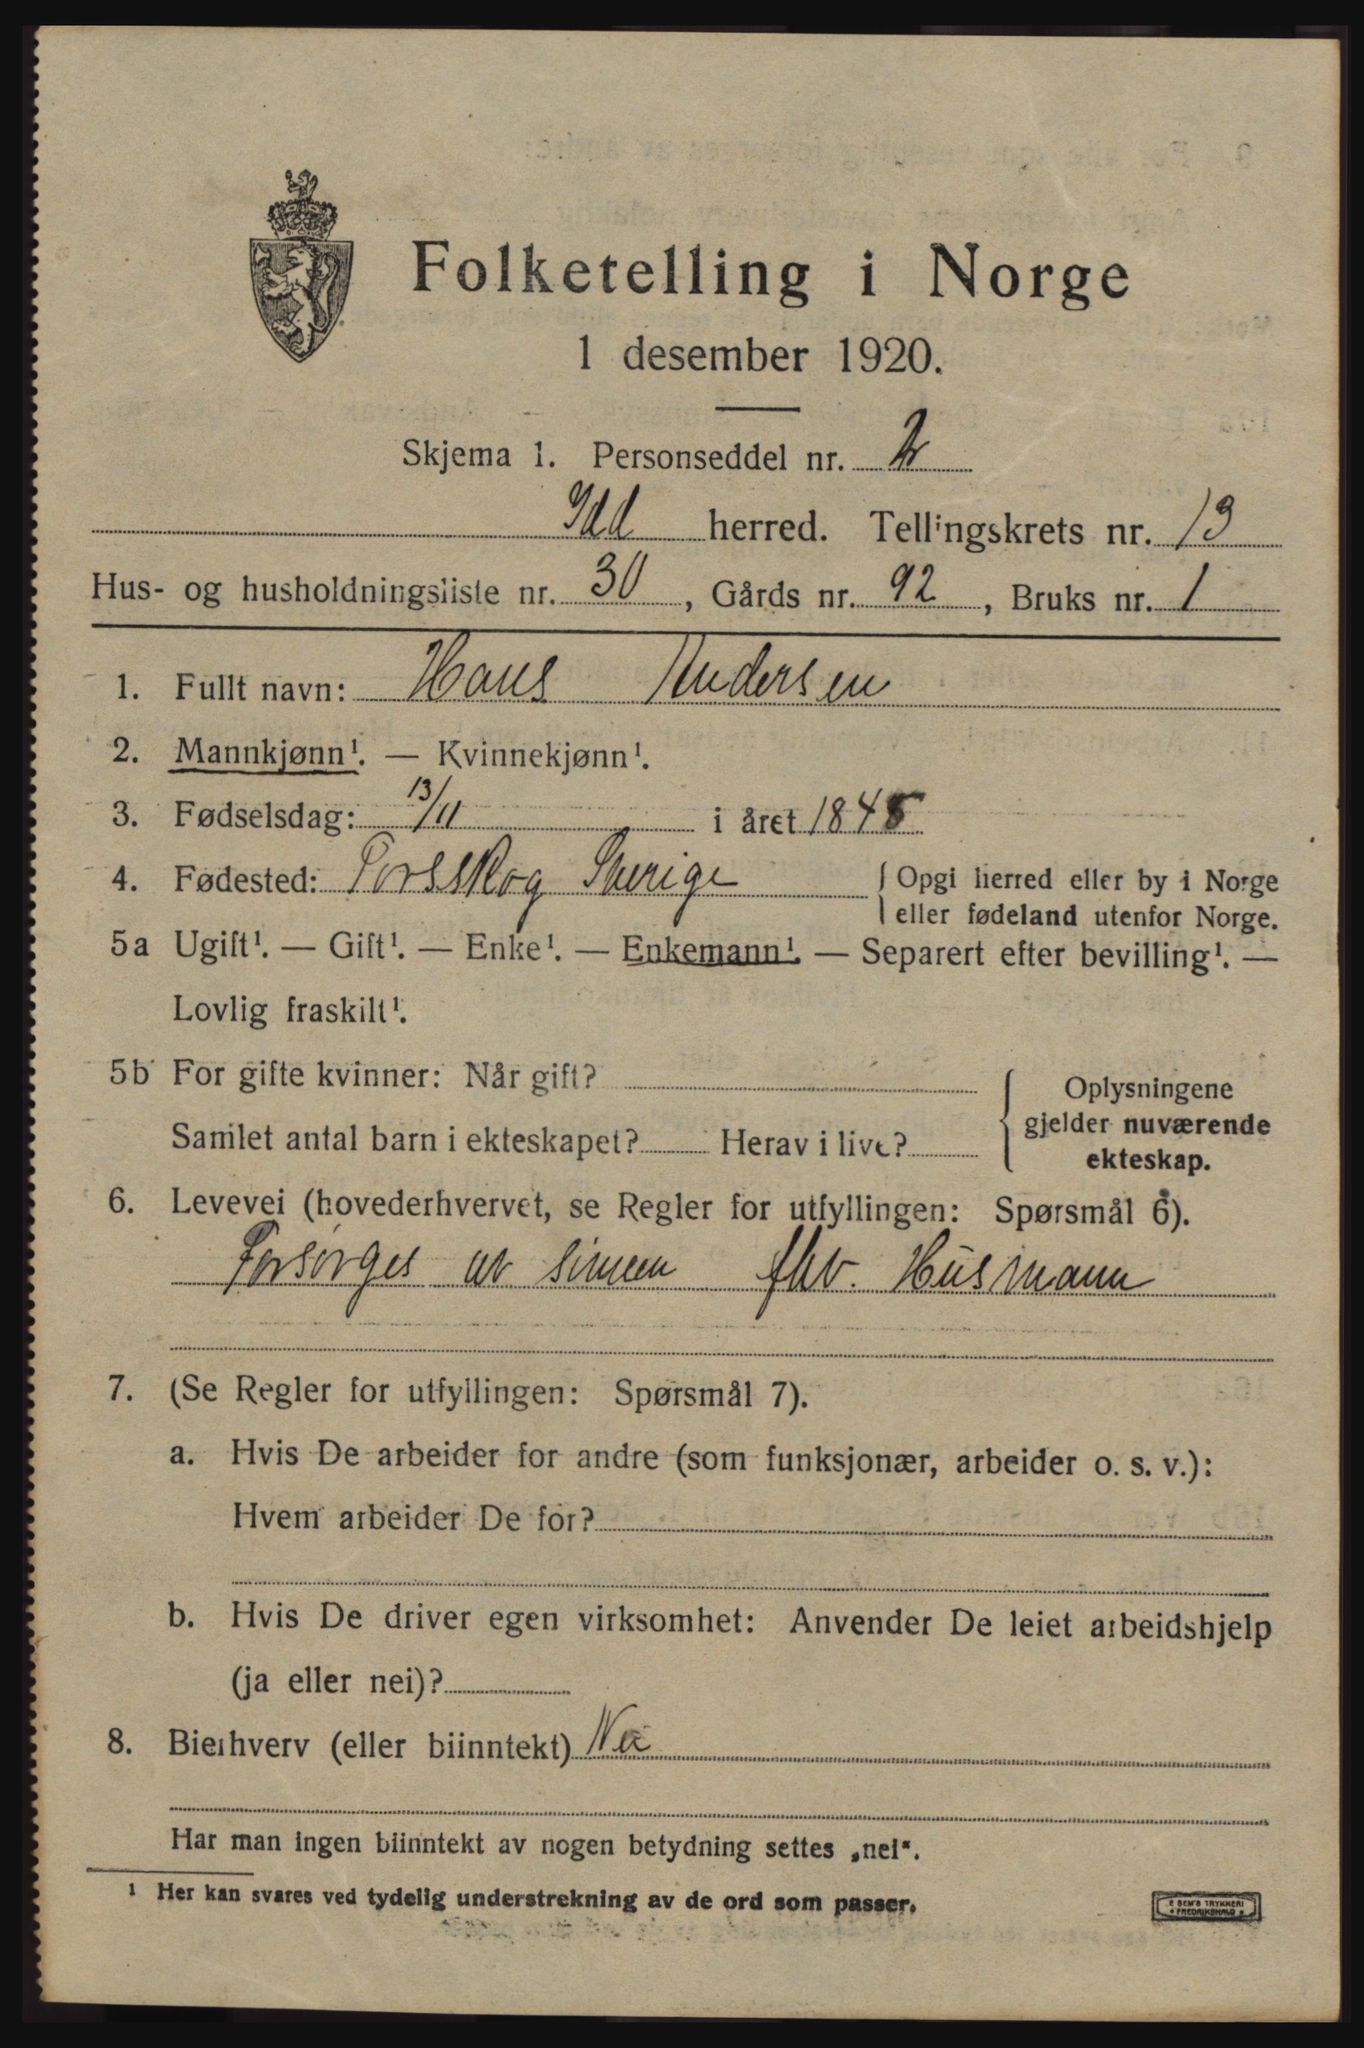 Folketelling i Norge
1 desember 1920.
Skjema 1. Personseddel nr. 2
Idd herred. Tellingskrets nr. 13
Hus- og husholdningsliste nr. 30, Gårds nr. 92, Bruks nr. 1
1. Fullt navn: Hans Andersen
2. Mannkjønn¹. — Kvinnekjønn¹.
3. Fødselsdag: 13/11 i året 1845
4. Fødested: Torsskog Sverige { Opgi herred eller by i Norge
eller fødeland utenfor Norge.
5a Ugift¹. — Gift¹. — Enke¹. — Enkemann¹. — Separert efter bevilling¹. —
Lovlig fraskilt¹.
5b For gifte kvinner: Når gift? { Oplysningene
gjelder nuværende
ekteskap.
Samlet antal barn i ekteskapet? Herav i live?
6. Levevei (hovederhvervet, se Regler for utfyllingen: Spørsmål 6).
Forsørges av sønnen fhv. Husmann
7. (Se Regler for utfyllingen: Spørsmål 7).
a. Hvis De arbeider for andre (som funksjonær, arbeider o. s. v.):
Hvem arbeider De for?
b. Hvis De driver egen virksomhet: Anvender De leiet arbeidshjelp
(ja eller nei)?
8. Bierhverv (eller biinntekt) Nei
Har man ingen biinntekt av nogen betydning settes „nei“.
¹ Her kan svares ved tydelig understrekning av de ord som passer.
SEM'S TRYKKERI
FREDRIKSHALD